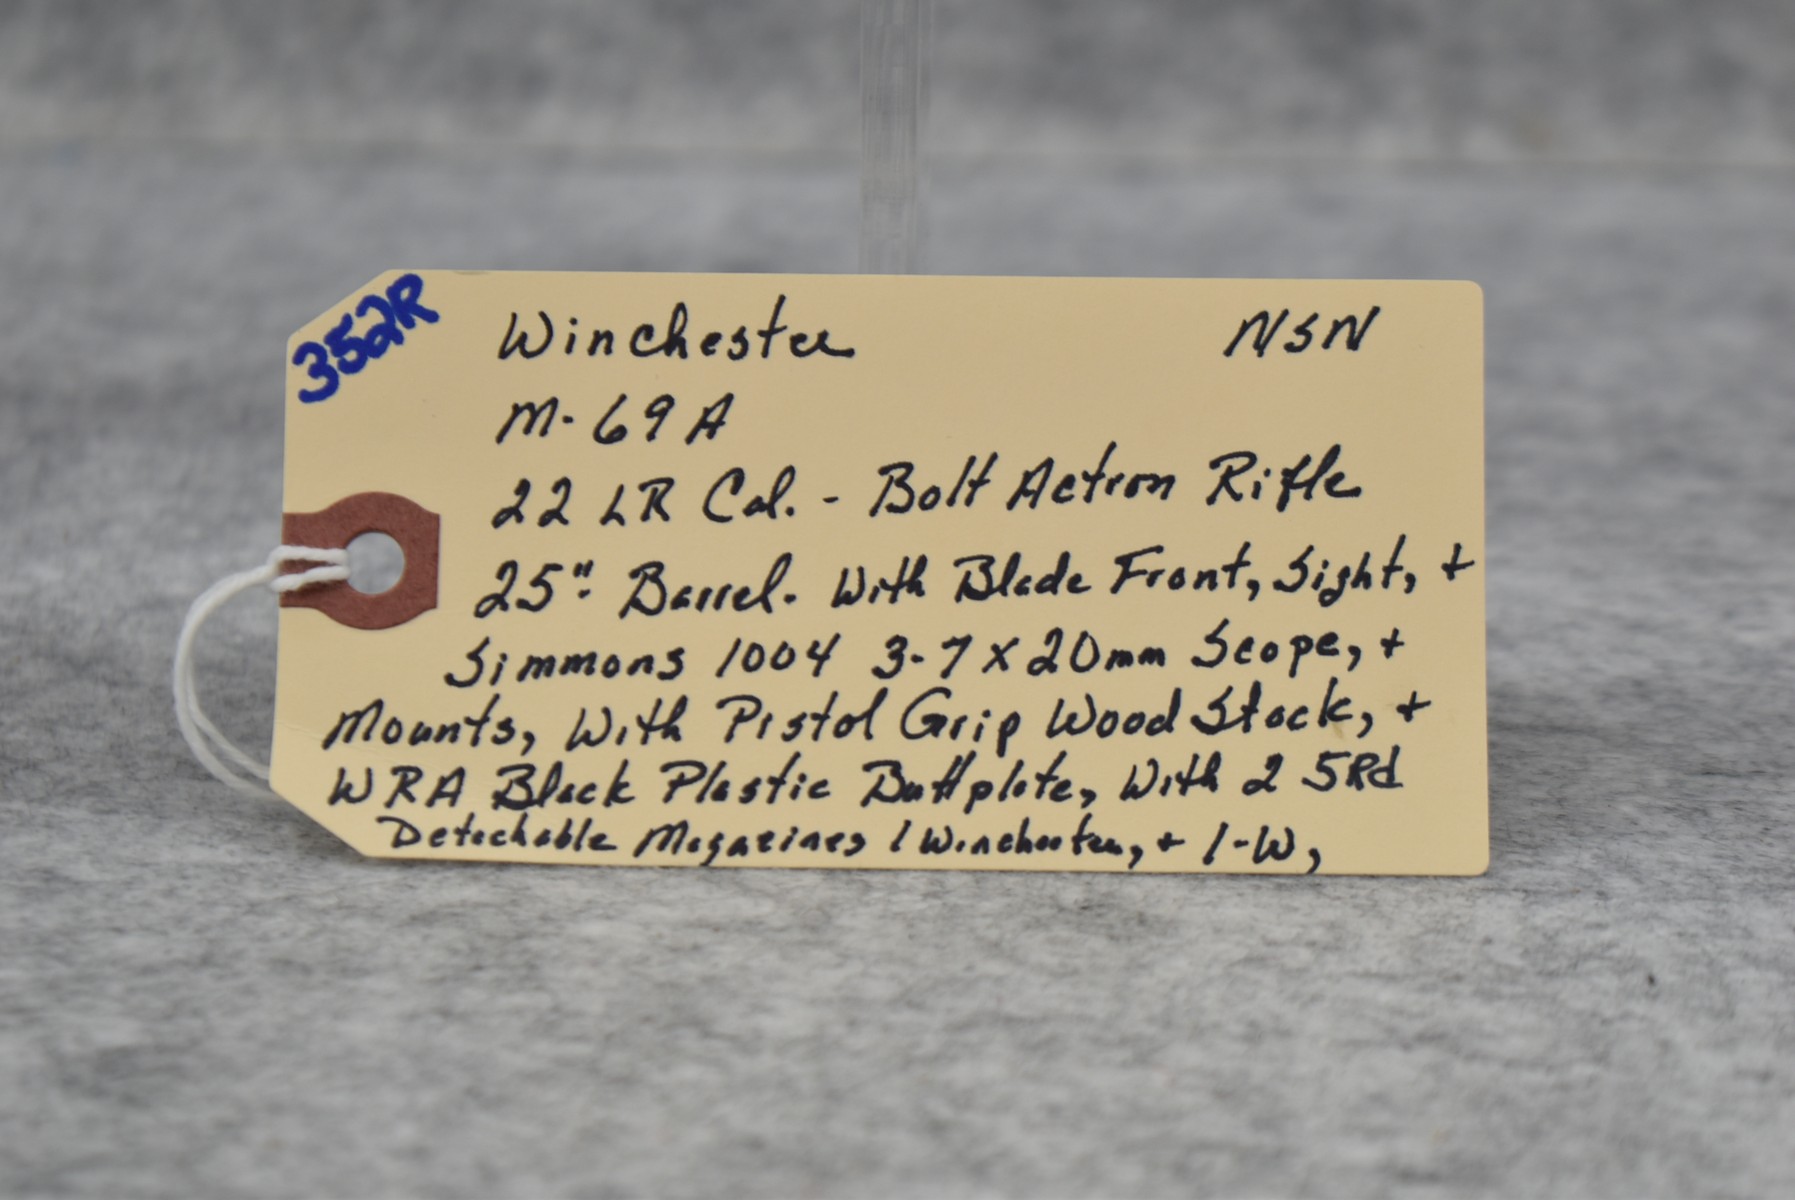 352R
Winchester NSN
M-69A
22 LR Cal. - Bolt Action Rifle
25" Barrel. With Blade Front, Sight, +
Simmons 1004 3-7x20mm Scope, +
Mounts, With Pistol Grip Wood Stock, +
WRA Black Plastic Buttplate, With 2 5Rd
Detachable Magazines 1 Winchester, + 1-W,